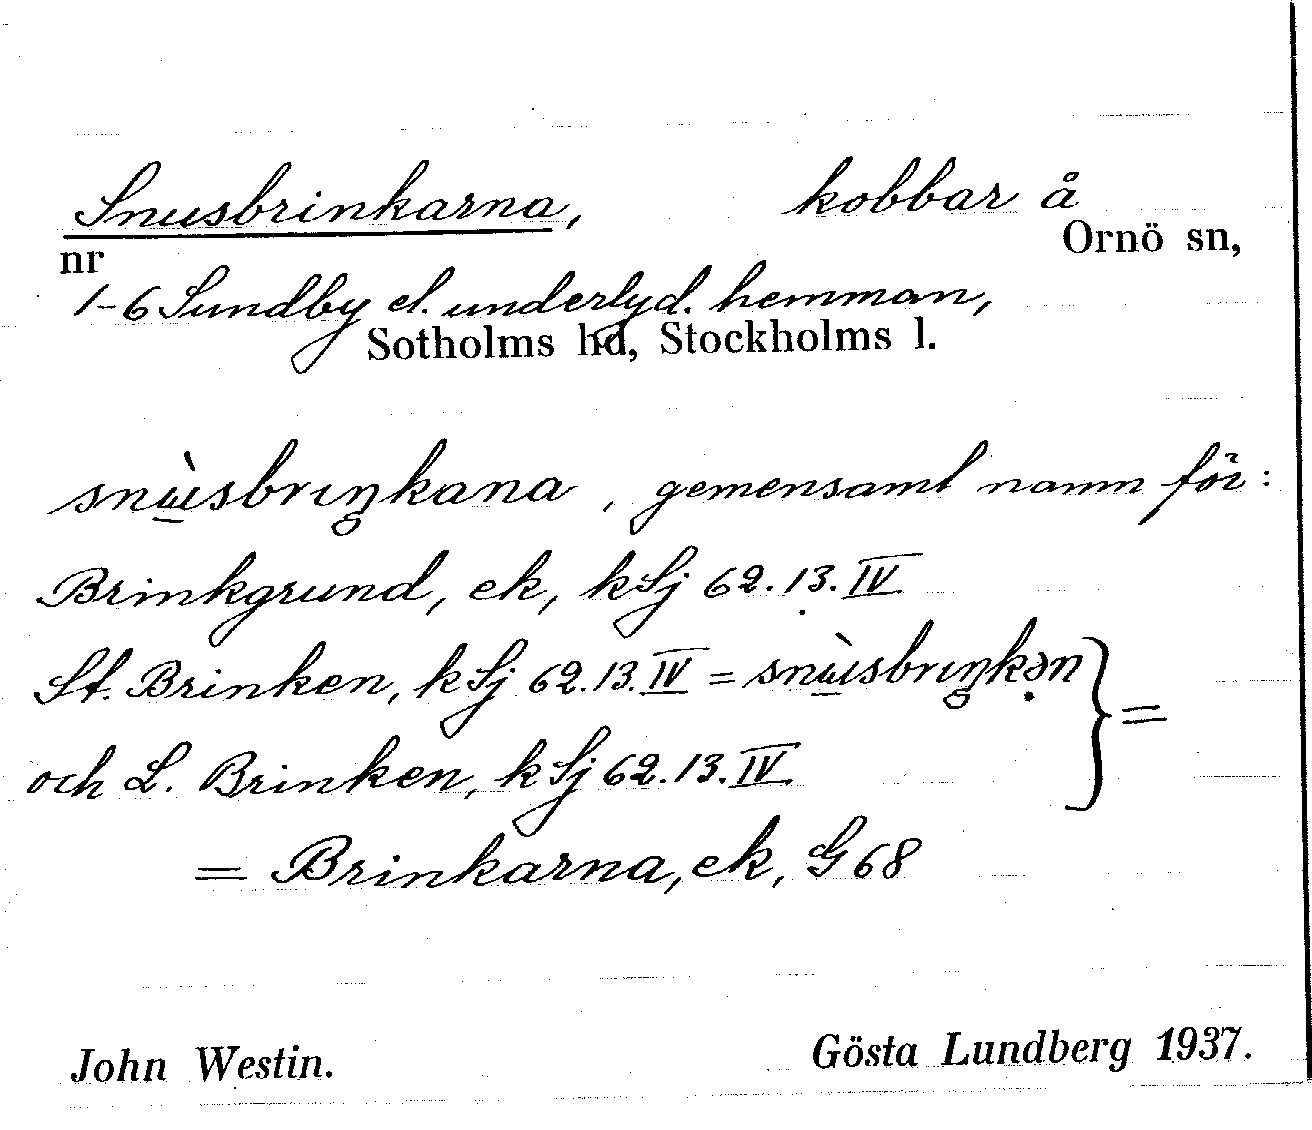 Snusbrinkarna, kobbar å
Ornö sn,
nr
1-6 Sundby el. underlyd. hemman,
Sotholms hd, Stockholms l.
snù̲sbrıŋkana, gemensamt namn för:
Brinkgrund, ek, kSj 62.13.IV
St. Brinken, kSj 62.13.IV = snù̲sbrıŋkə̣n } =
och L. Brinken, kSj 62.13.IV
= Brinkarna, ek, G 68
John Westin. Gösta Lundberg 1937.